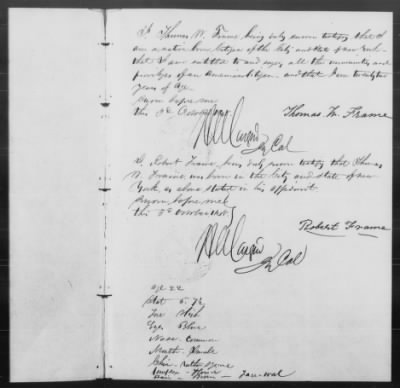 I, Thomas W. Frame, being duly sworn testify, that I
am a native born Citizen of the City and State of New York
that I am entitled to and enjoy all the immunities and
privileges of an American Citizen - and that I am twenty two
years of Age.
Sworn before me
this 3d October
Thomas W. Frame
Col
I, Robert Frame, being duly sworn testify that Thomas
W. Frame, was born in the City and State of New
York, as above stated in his affidavit
Sworn before me
this 3d October
Robert Frame
Col
Age 22
Stat 5. 7½
Fore High
Eyes Blue
Nose Common
Mouth
Chin
Hair Brown - Face - oval